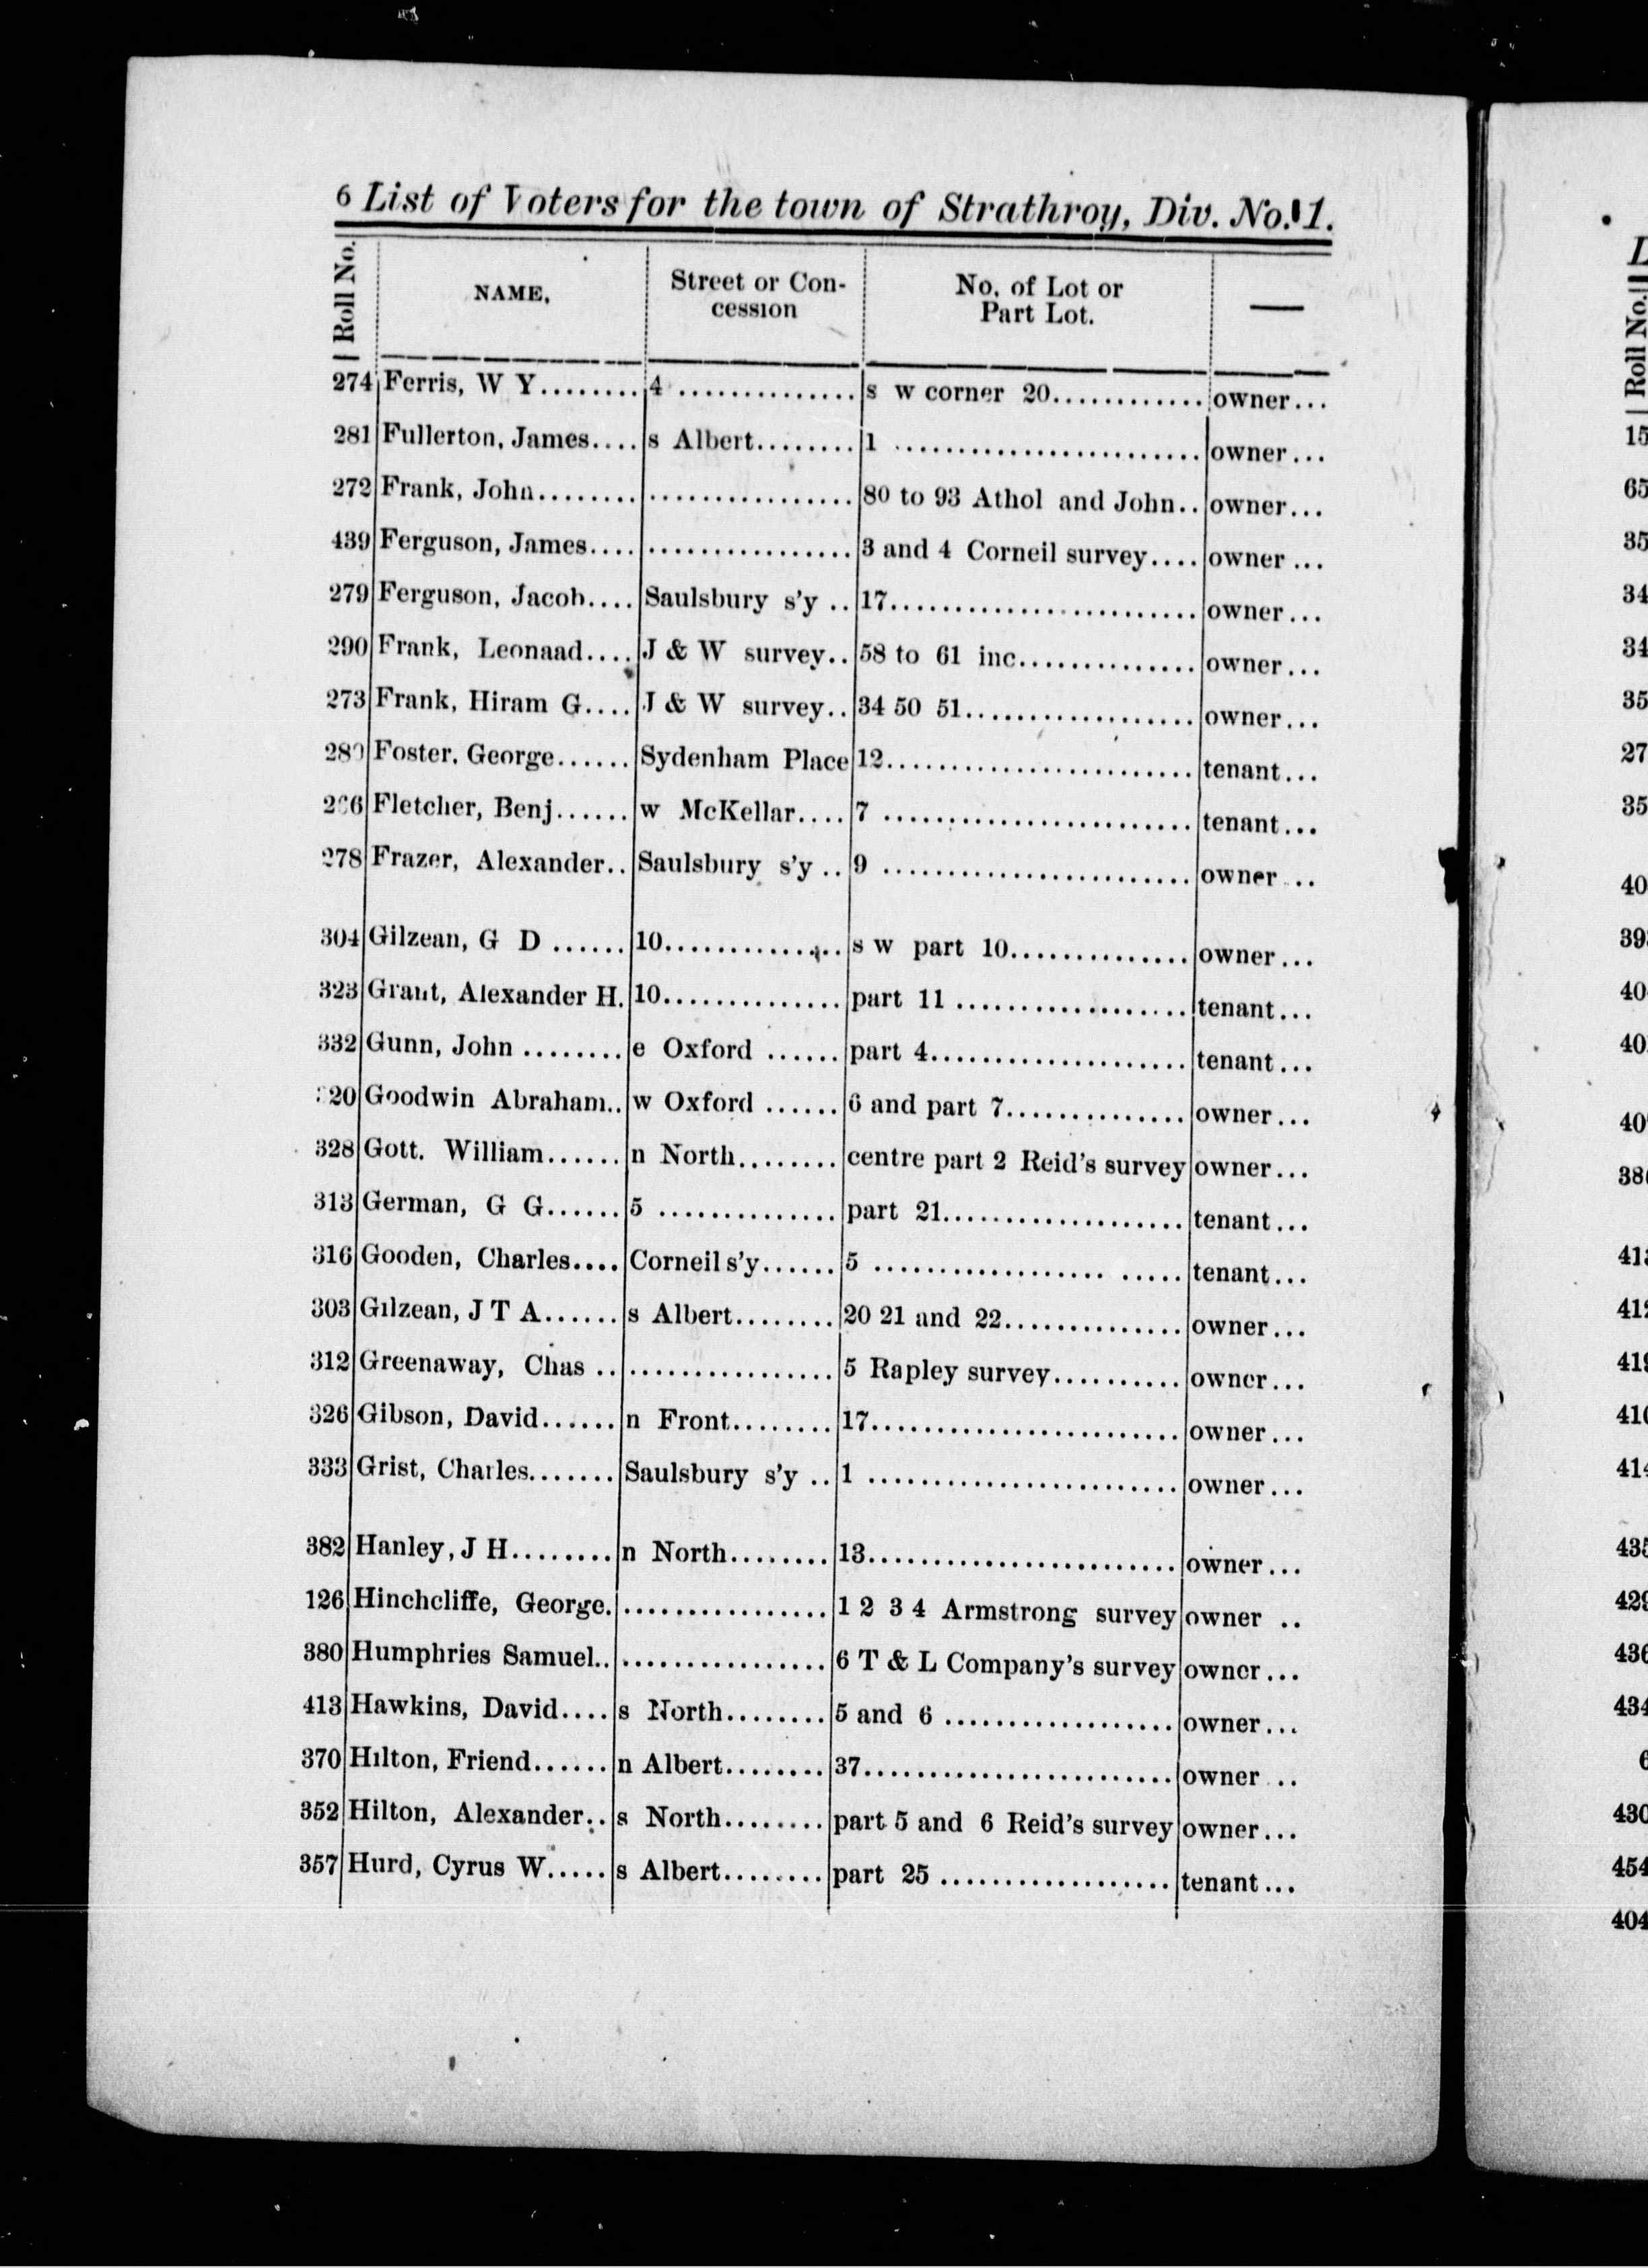 6 List of Voters for the town of Strathroy, Div. No. 1.
Roll No. NAME. Street or Concession No. of Lot or Part Lot. —
274 Ferris, W Y........ 4 .............. s w corner 20............ owner...
281 Fullerton, James.... s Albert........ 1 ........................ owner...
272 Frank, John........ ................ 80 to 93 Athol and John.. owner...
439 Ferguson, James.... ................ 3 and 4 Corneil survey.... owner ...
279 Ferguson, Jacob.... Saulsbury s'y .. 17........................ owner...
290 Frank, Leonaad.... J & W survey.. 58 to 61 inc.............. owner...
273 Frank, Hiram G.... J & W survey.. 34 50 51.................. owner...
280 Foster, George...... Sydenham Place 12........................ tenant...
Fletcher, Benj...... w McKellar.... 7 ........................ tenant...
278 Frazer, Alexander.. Saulsbury s'y .. 9 ........................ owner ...
304 Gilzean, G D ...... 10.............. s w part 10.............. owner...
323 Grant, Alexander H. 10.............. part 11 .................. tenant...
332 Gunn, John ........ e Oxford ...... part 4.................... tenant...
20 Goodwin Abraham.. w Oxford ...... 6 and part 7.............. owner...
328 Gott. William...... n North........ centre part 2 Reid's survey owner...
313 German, G G...... 5 .............. part 21................... tenant...
316 Gooden, Charles.... Corneil s'y...... 5 .................. ..... tenant...
303 Gilzean, J T A...... s Albert........ 20 21 and 22.............. owner...
312 Greenaway, Chas .. ................ 5 Rapley survey.......... owner...
326 Gibson, David...... n Front........ 17........................ owner...
333 Grist, Charles....... Saulsbury s'y .. 1 ........................ owner...
382 Hanley, J H........ n North........ 13........................ owner...
126 Hinchcliffe, George. ................ 1 2 3 4 Armstrong survey owner ..
380 Humphries Samuel.. ................ 6 T & L Company's survey owner...
413 Hawkins, David.... s North........ 5 and 6 .................. owner...
370 Hilton, Friend...... n Albert........ 37........................ owner ..
352 Hilton, Alexander.. s North........ part 5 and 6 Reid's survey owner...
357 Hurd, Cyrus W..... s Albert........ part 25 .................. tenant...
L
Roll No.
15
65
35
34
34
35
27
35
40
39
40
40
40
38
41
412
419
410
414
435
429
436
434
6
430
454
404